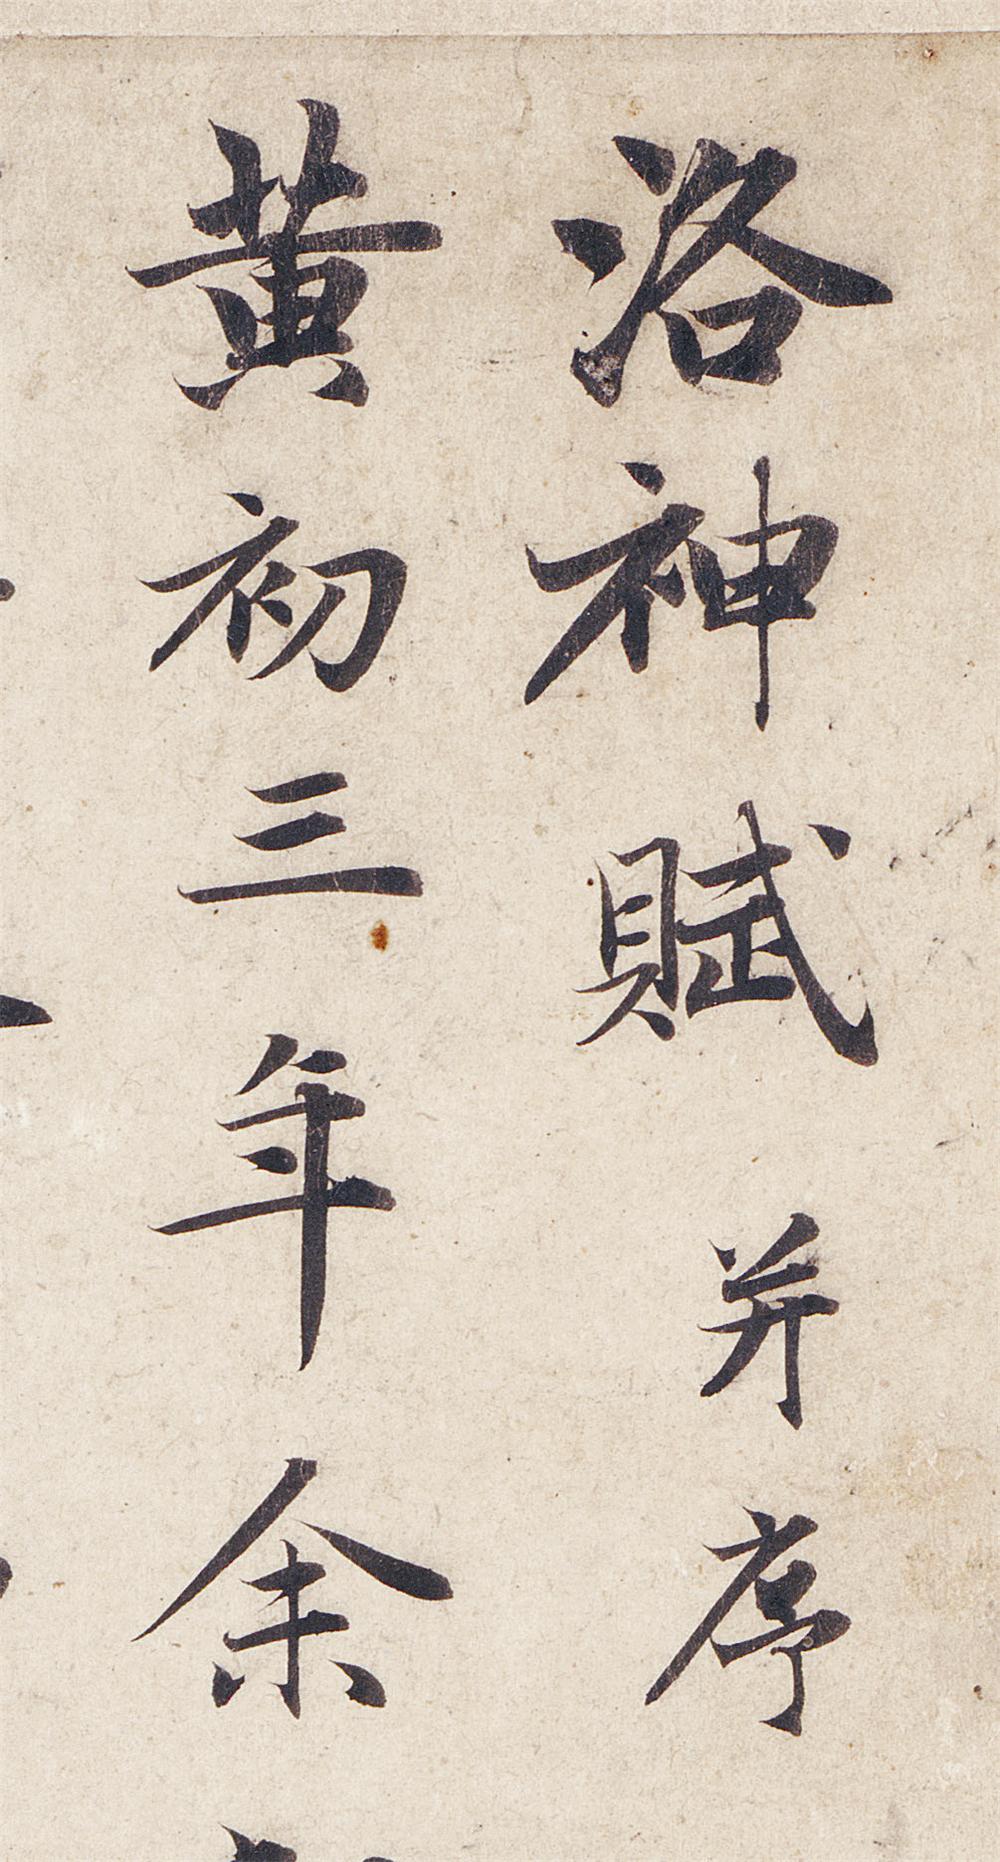 洛神賦并序
黄初三年余